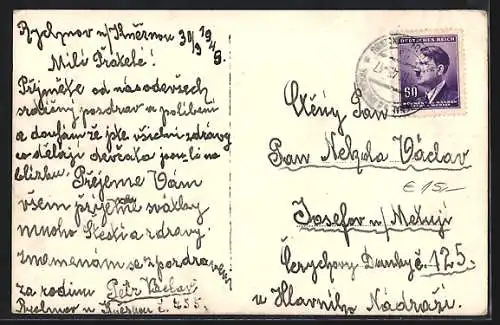 Rychnov n/Kněžnou 30/3 1943.
Milí Přátelé!
Přijměte od nás odevšech
srdečný pozdrav a políbení
a doufám že jste všichni zdrávy
co dělají děvčata jsou-li na
blízku. Přejeme Vám
všem příjemné svátky
mnoho Štěstí a zdraví
znamenám se z pozdravem
za rodinu Petr Václav
Rychnov n Kněžnou č. 235.
DEUTSCHES REICH
60
BÖHMEN UND MÄHREN
Ctěný Pan
Pan Nekola Václav
€ 15,-
Josefov n/Metují
č. 125.
u Hlavního Nádraží.